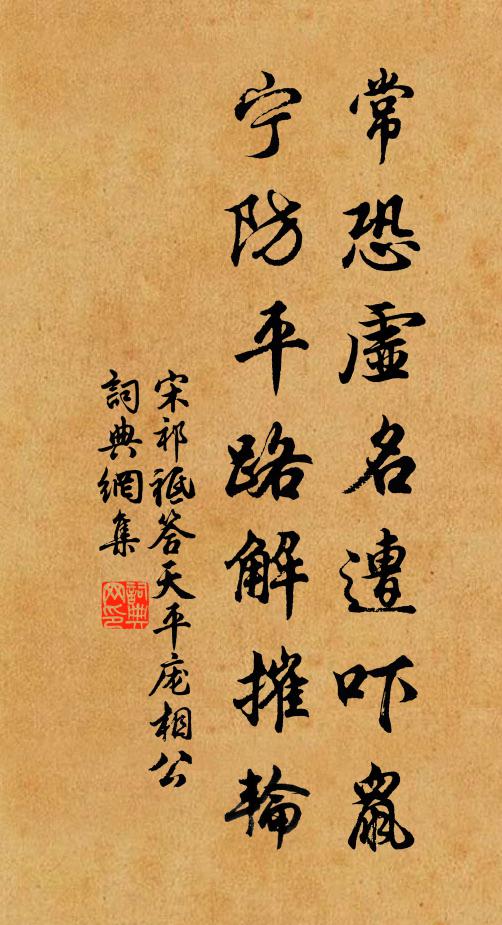 常恐虛名遭吓鼠
宁防平路解摧輪
宋祁祗答天平庞相公
詞典網集
詞典网印